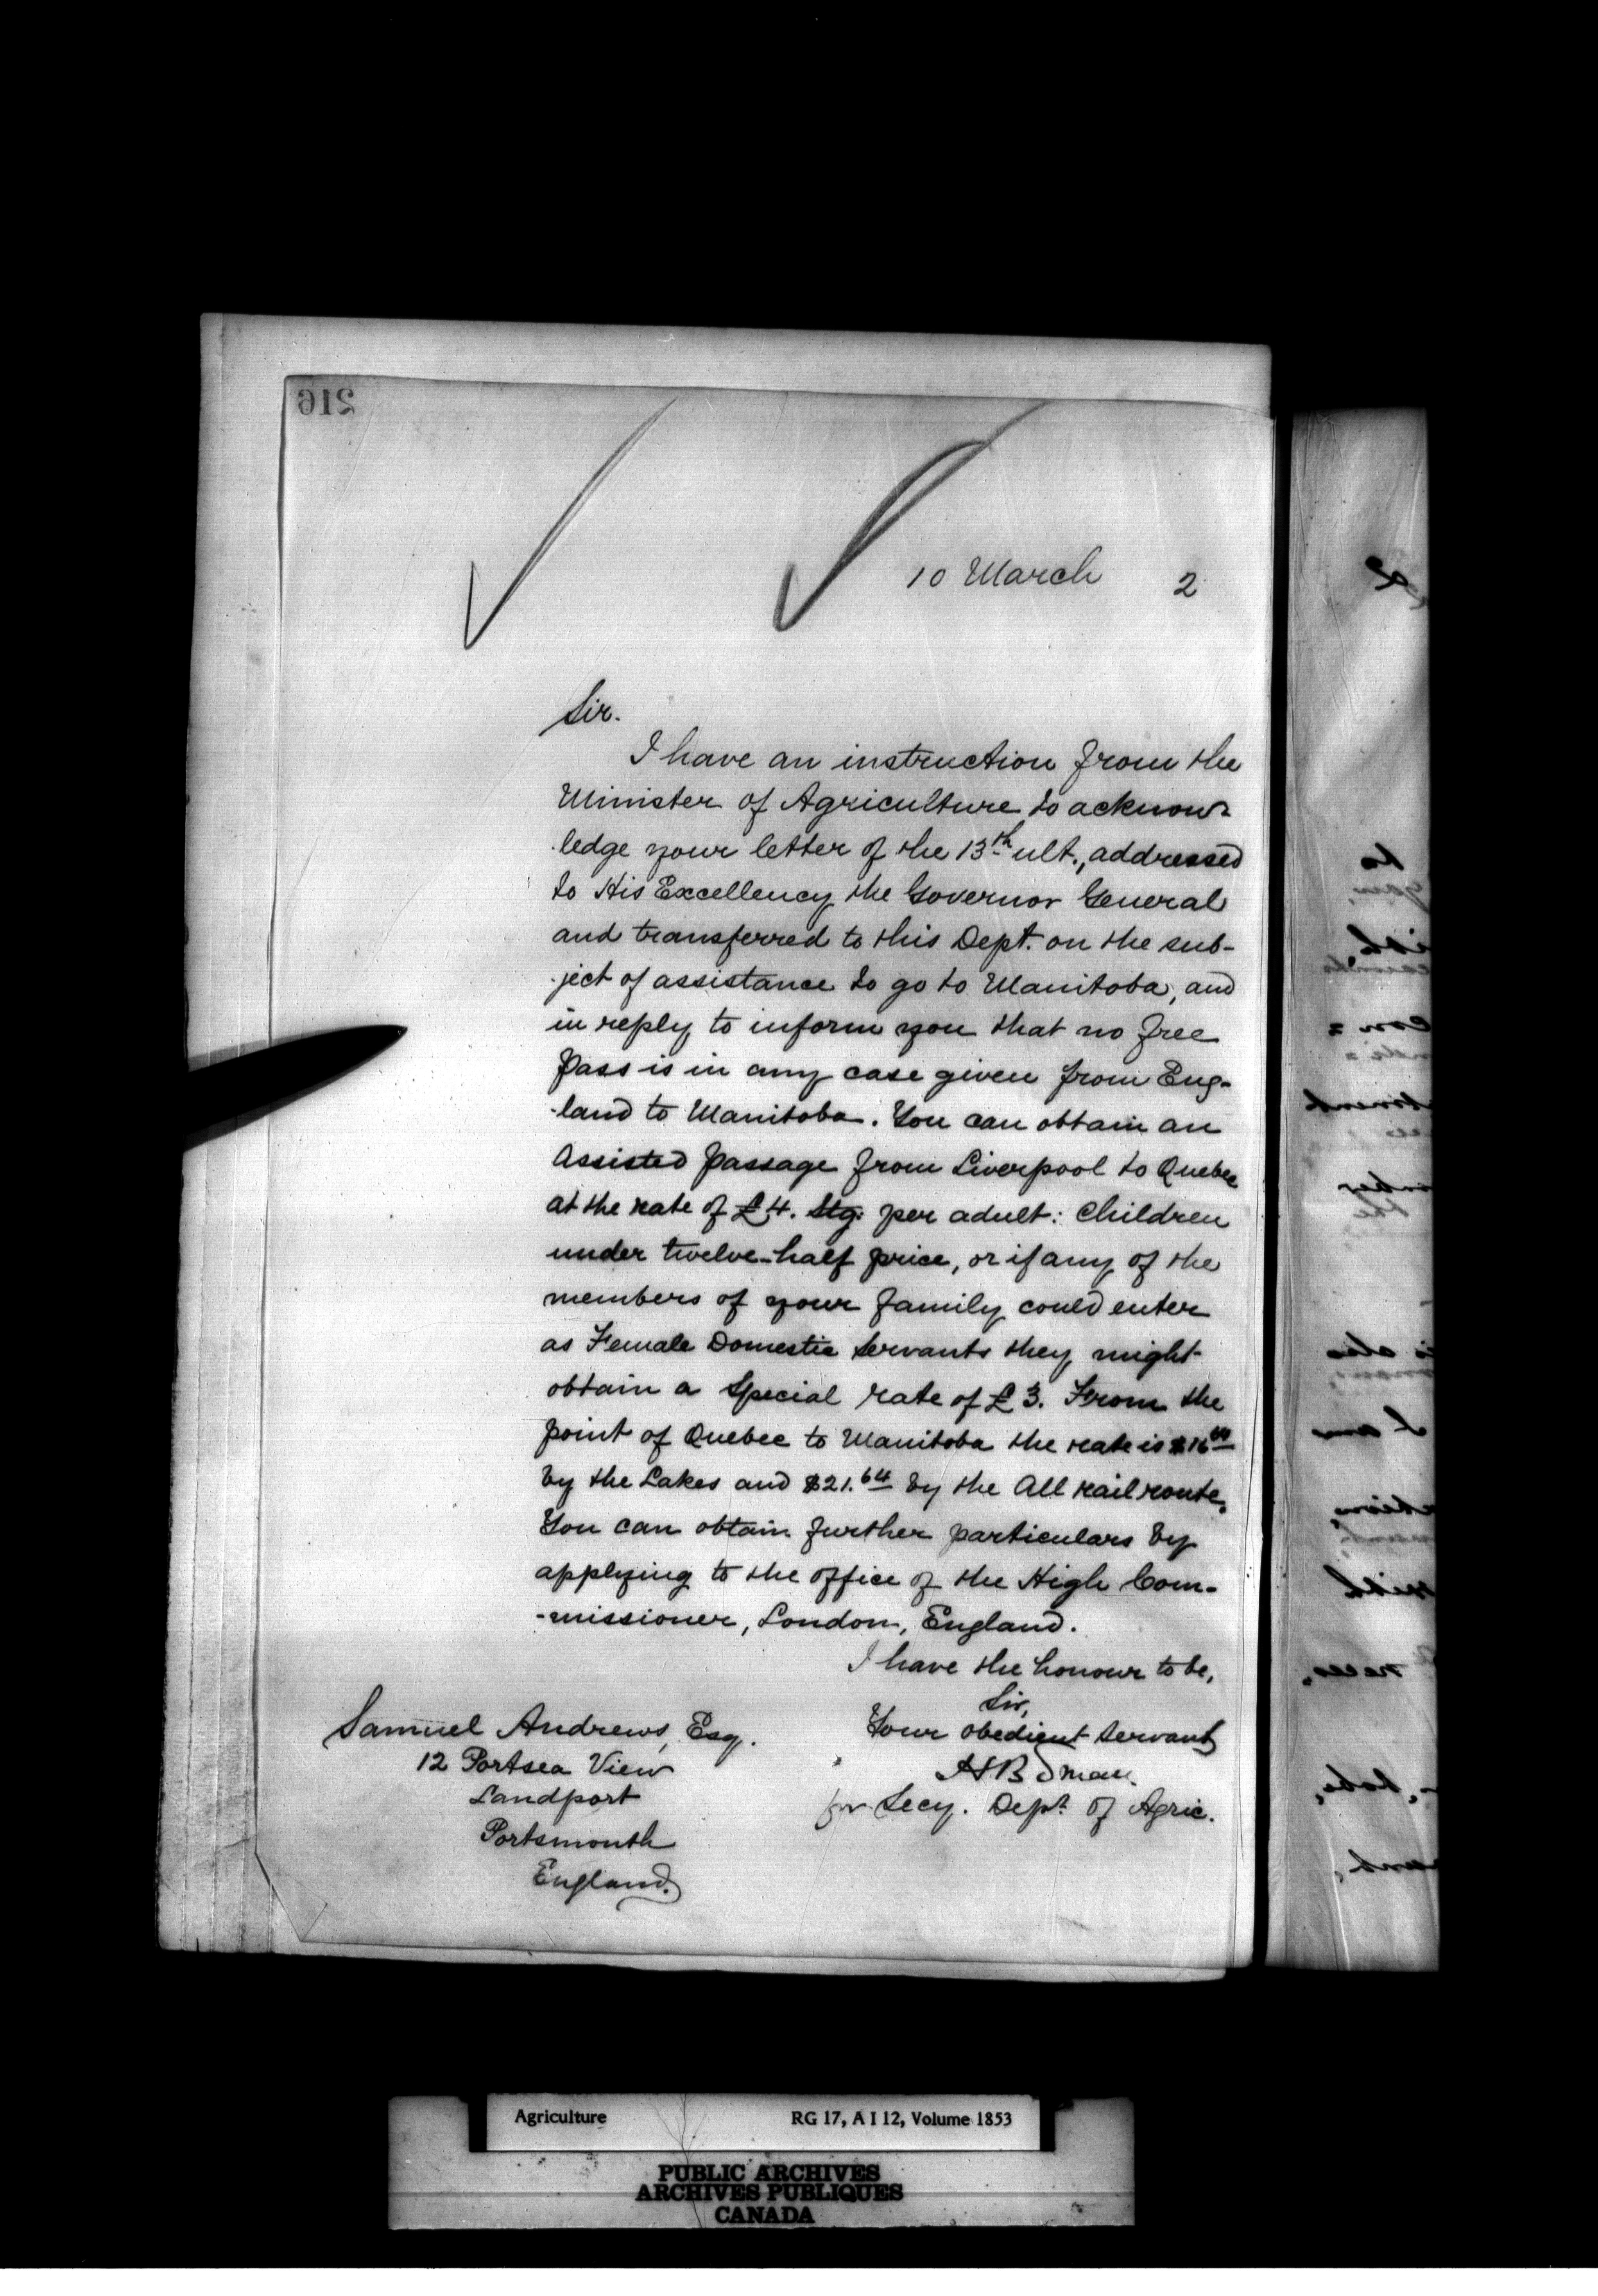 216
10 March 2
Sir.
I have an instruction from the
Minister of Agriculture to acknow-
-ledge your letter of the 13th ult., addressed
to His Excellency the Governor General
and transferred to this Dept. on the sub-
-ject of assistance to go to Manitoba, and
in reply to inform you that no free
pass is in any case given from Eng-
-land to Manitoba. You can obtain an
Assisted passage from Liverpool to Quebec
at the rate of £4. Stg. per adult: Children
under twelve-half price, or if any of the
members of your family could enter
as Female Domestic Servants they might
obtain a Special rate of £3. From the
point of Quebec to Manitoba the rate is $16
by the Lakes and $21.64 by the All rail route.
You can obtain further particulars by
applying to the office of the High Com-
-missioner, London, England.
I have the honour to be,
Sir,
Your obedient servant
H B Small
for Secy. Dept. of Agric.
Samuel Andrews, Esq.
12 Portsea View
Landport
Portsmouth
England.
Agriculture RG 17, A I 12, Volume 1853
PUBLIC ARCHIVES
ARCHIVES PUBLIQUES
CANADA